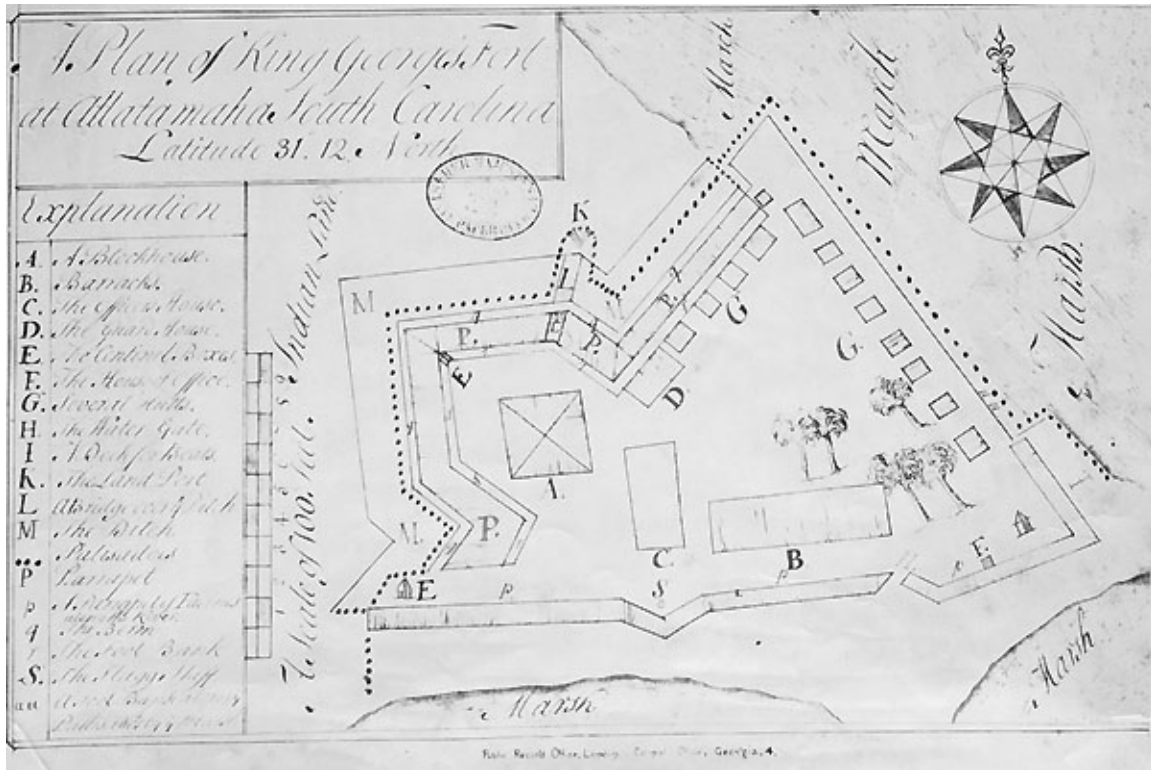 A Plan of King George's Fort
at Allatamaha South Carolina
Latitude 31. 12. North
Explanation
A. A Blockhouse.
B. Barracks.
C. The Officers House.
D. The Guard House.
E. The Centinel Boxes.
F. The House of Office.
G. Several Hutts.
H. The Water Gate.
I A Dock for Boats.
K. The Land Port
L A Bridge over ye Ditch
M The Ditch
Palisadoes
P Rampart
p
q The Berm
The Foot Bank
S. The Flagg Staff
A Scale of 100 Feet.
Indian Land
March
March
Marsh.
K
L
M
P.
q
P.
E
G
D
G.
A.
M.
P.
C
B
F.
E
p
S
p
Marsh
Marsh
Public Records Office, London Colonial Office, Georgia, 4.